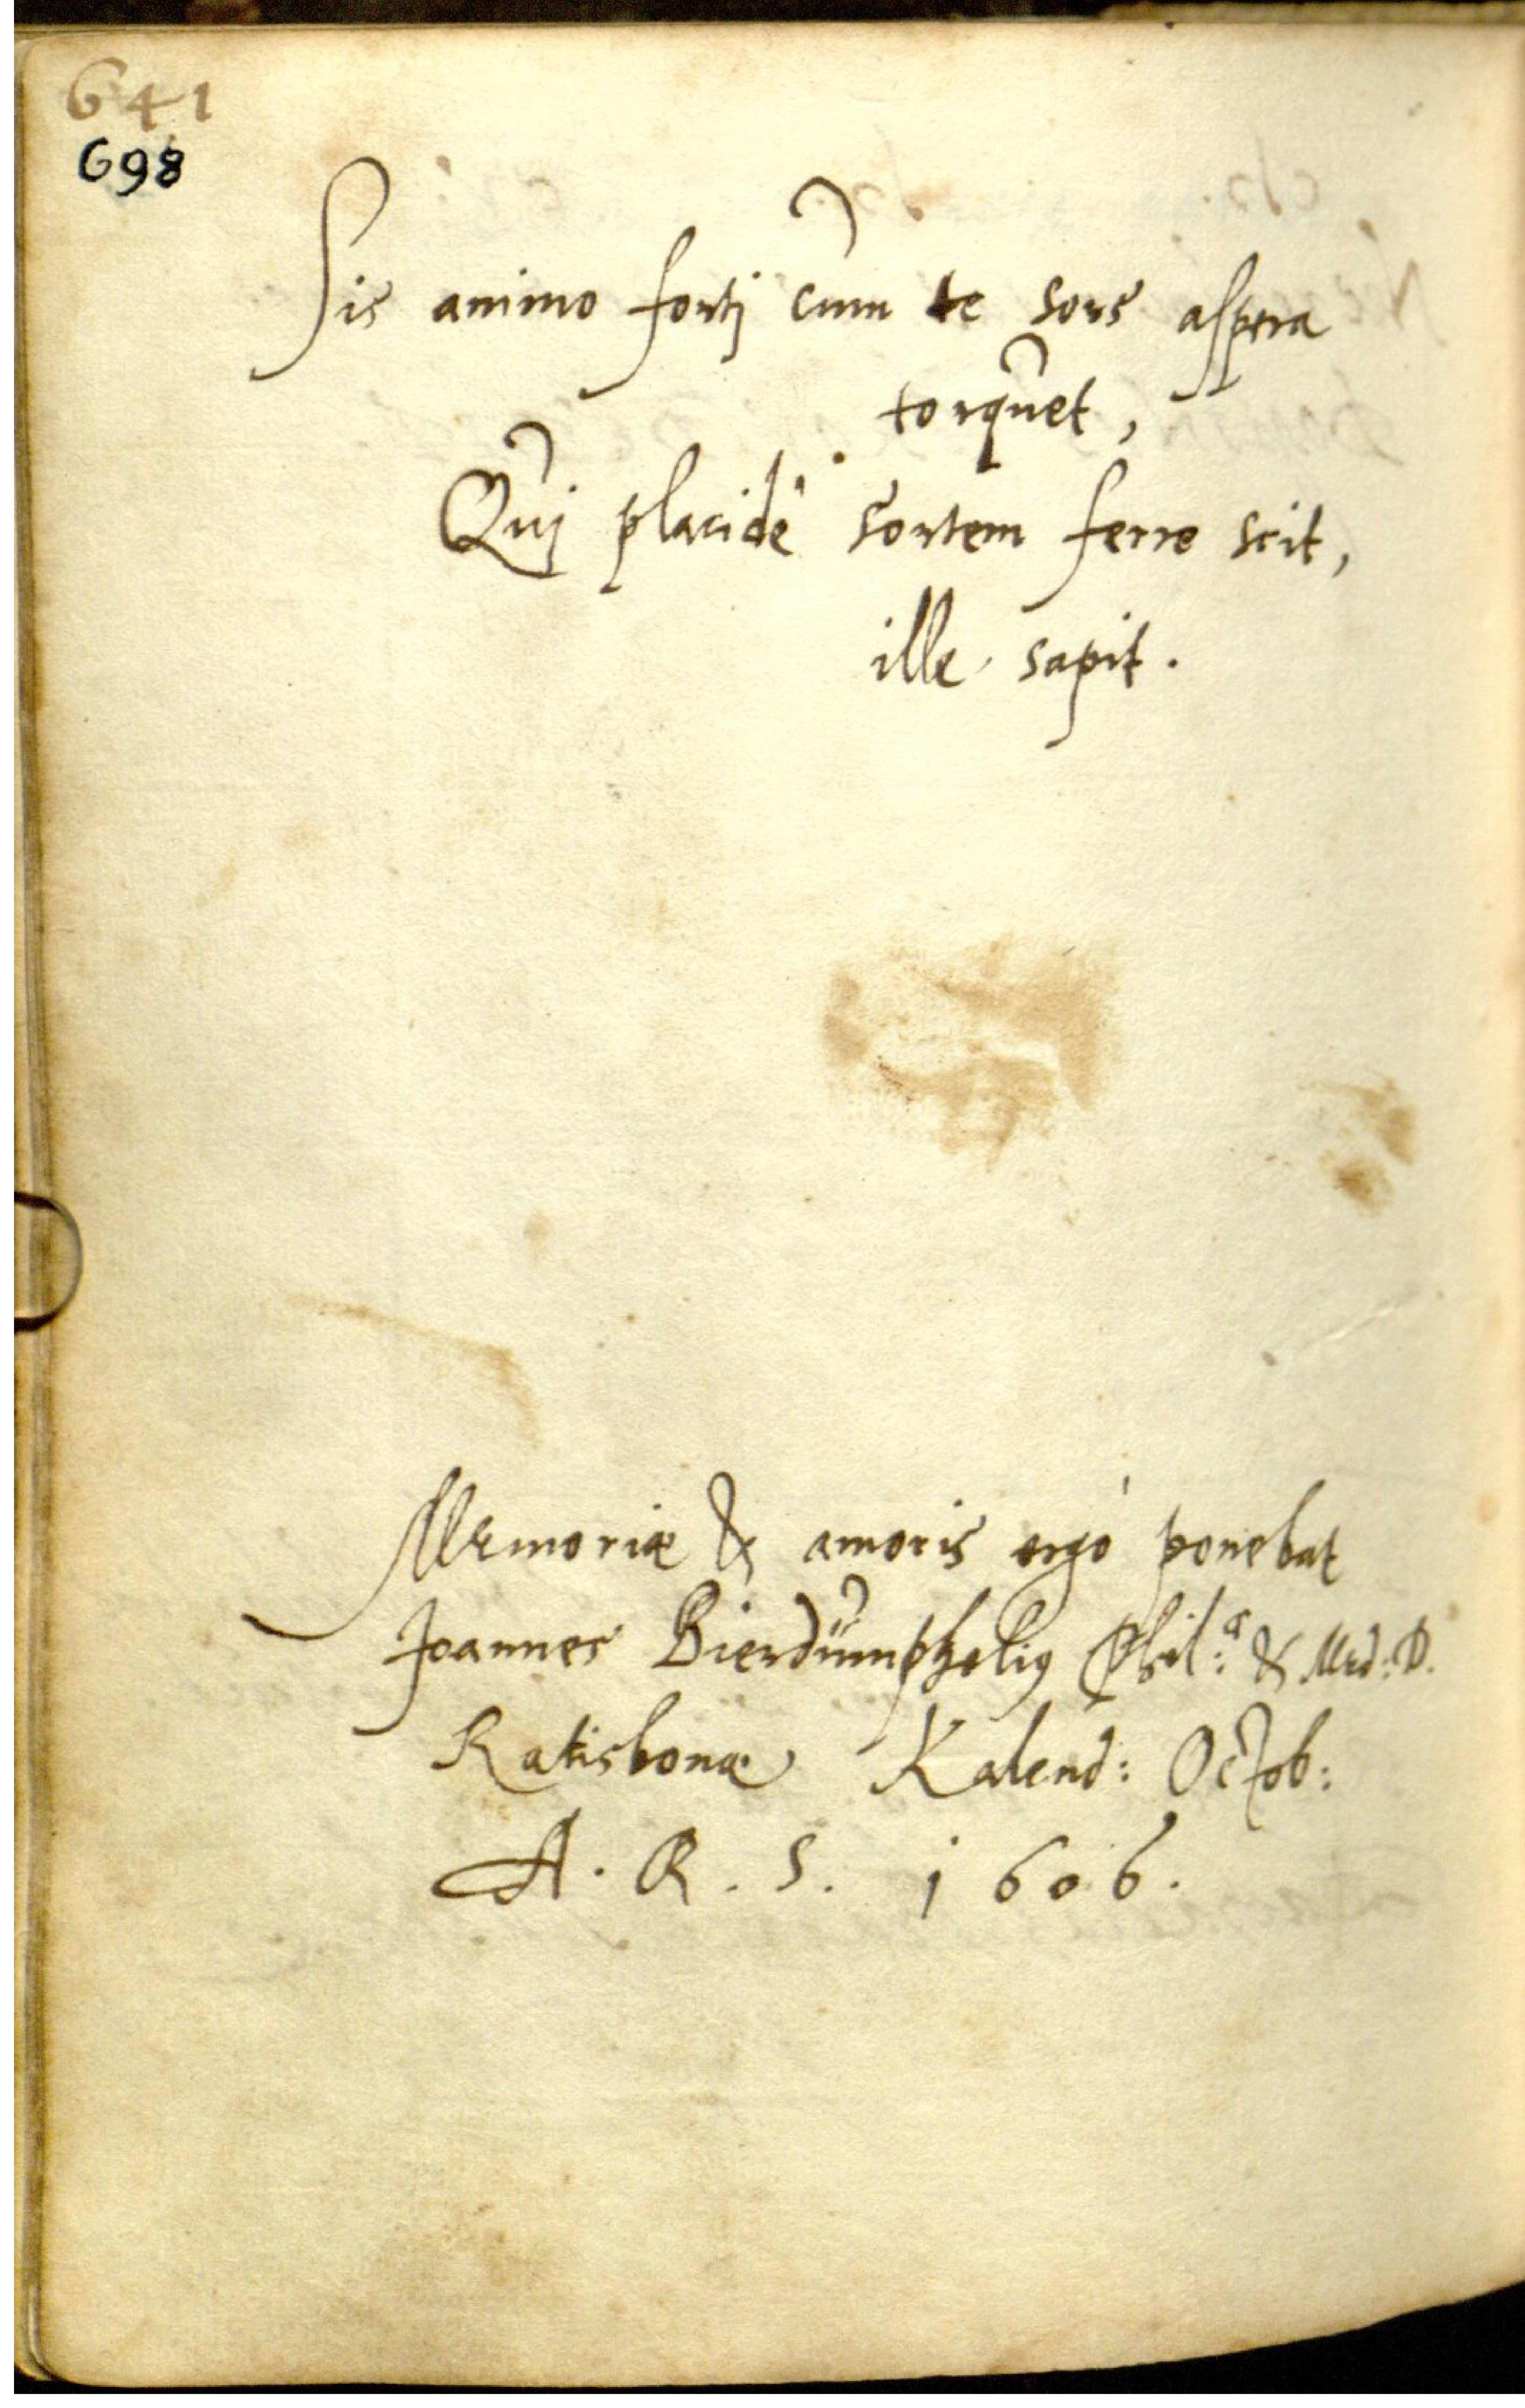 641
698
Sis animo fortj cum te sors aspera
torquet,
Quj placidè sortem ferre scit,
ille sapit.
Memoriæ & amoris ergò ponebat
Joannes Bierdümphelius Phil:æ & Med: D.
Ratisbonæ Kalend: Octob:
A. R. S. 1606.